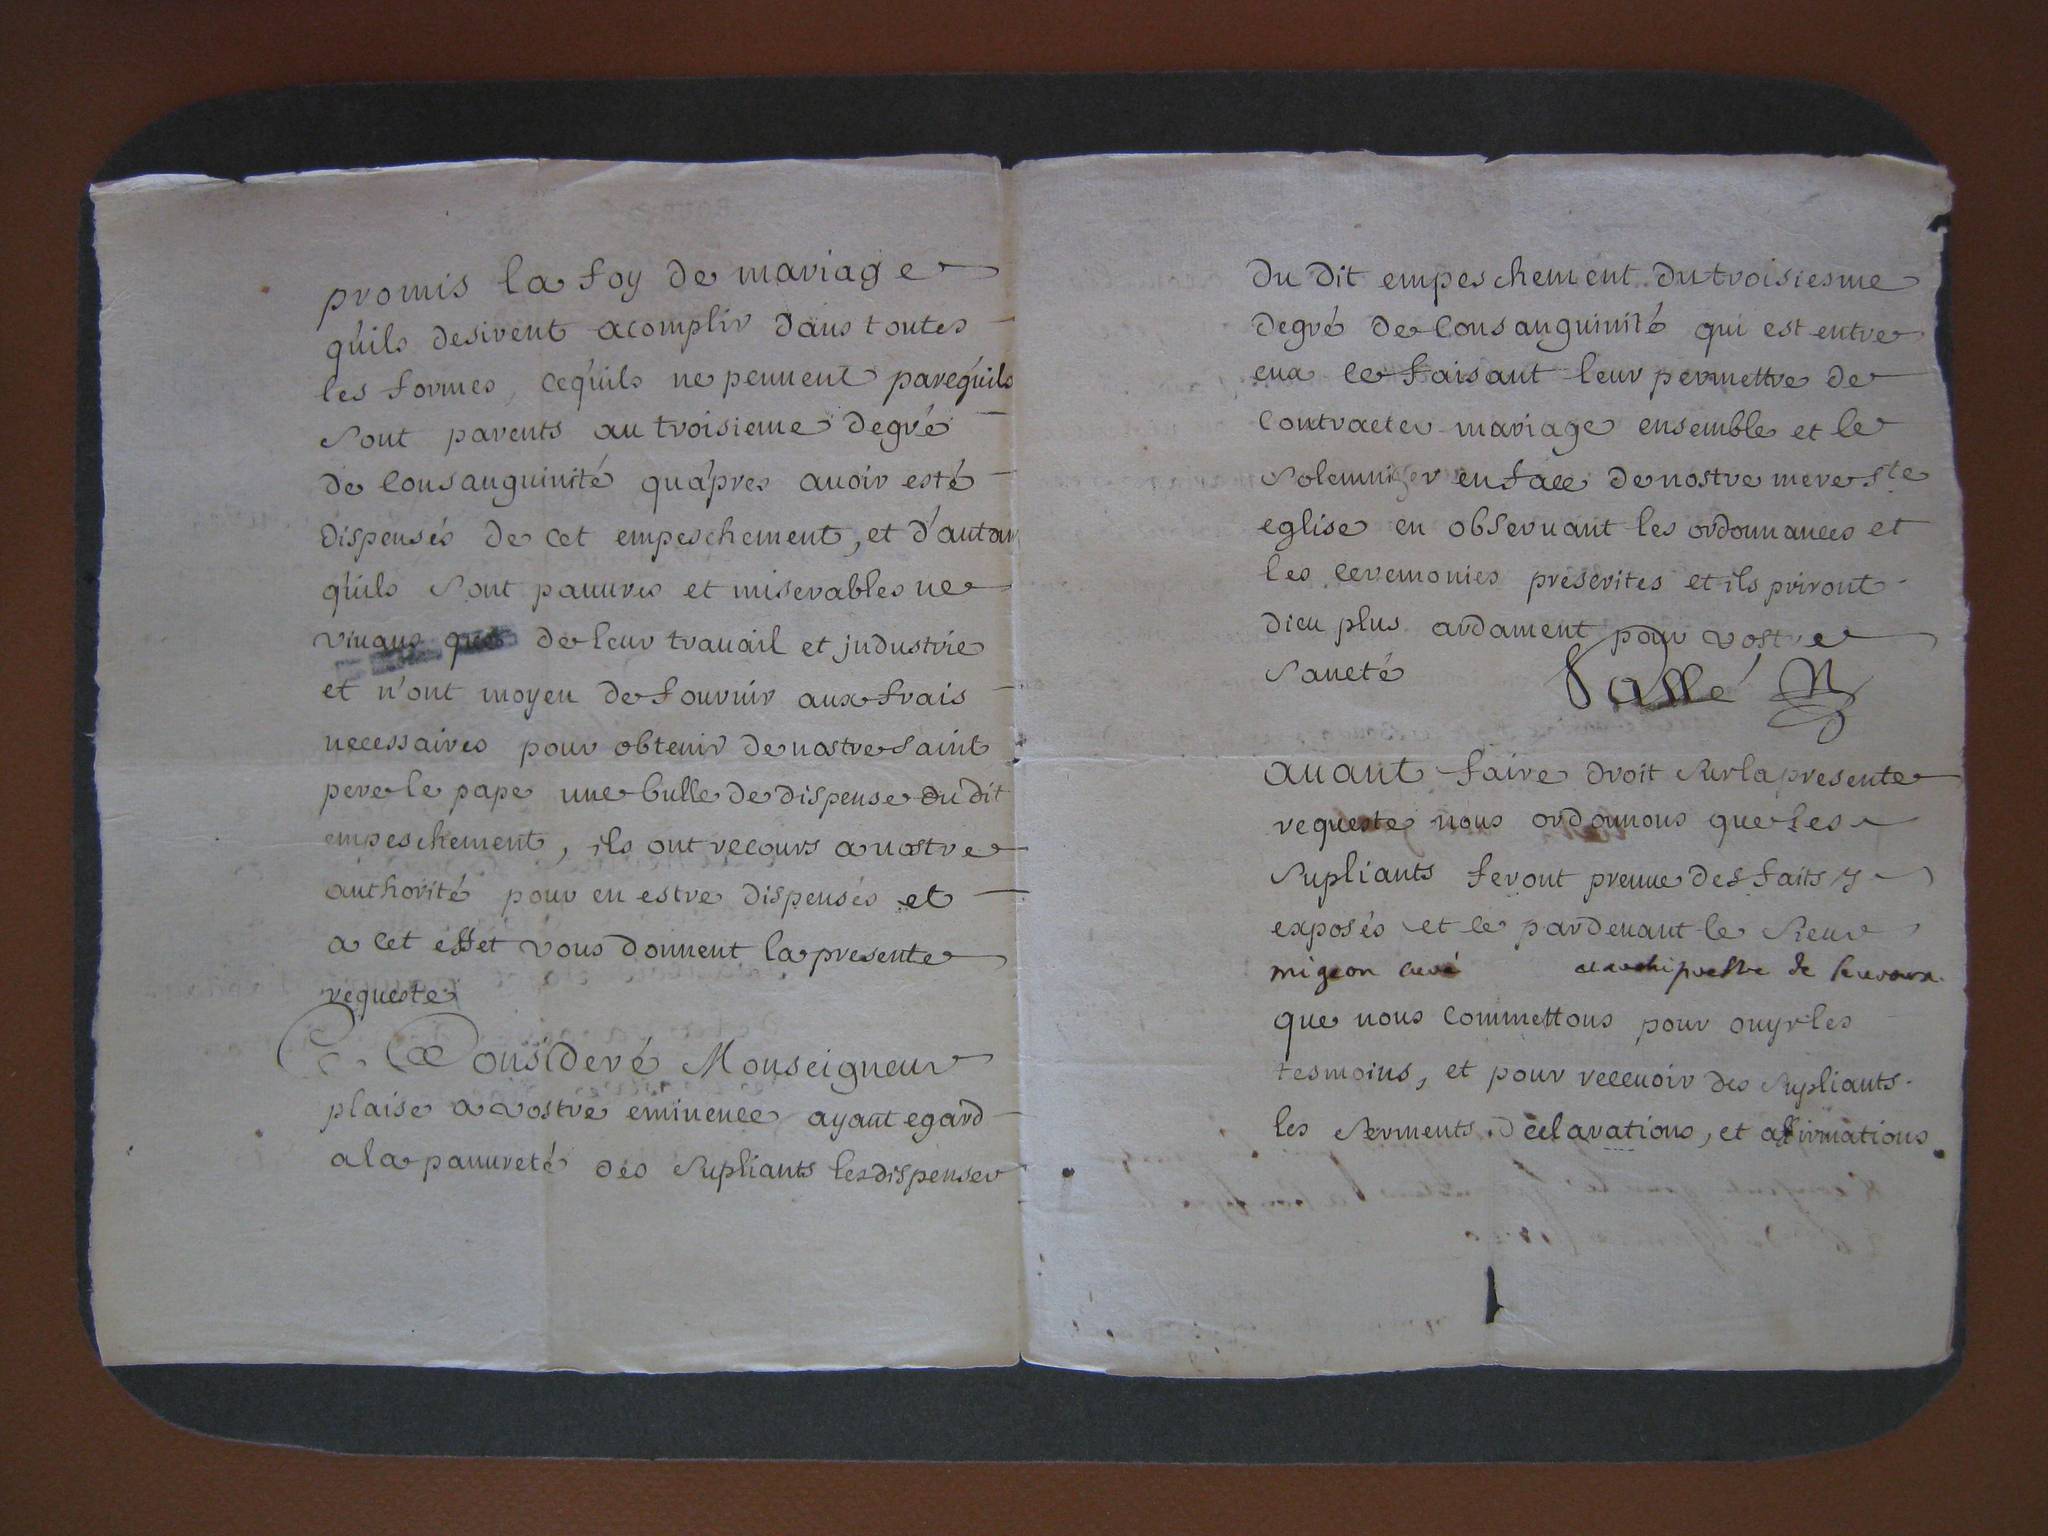 promis la foy de mariage
qu'ils desirent acomplir dans toutes
les formes, cequ'ils ne peuuent parcequ'ils
sont parents au troisieme degré
de consanguinité qu'apres auoir esté
dispensés de cet empeschement, et d'autan
qu'ils sont pauures et miserables ne
viuans que de leur trauail et jndustrie
et n'ont moyen de fournir aux frais
necessaires pour obtenir de nostre saint
pere le pape une bulle de dispense du dit
empeschement, ils ont recours a nostre
authorité pour en estre dispensés et
a cet effet vous donnent la presente
requeste
Consideré Monseigneur
plaise a vostre eminence ayant egard
a la pauureté des supliants les dispenser
du dit empeschement du troisiesme
degré de consanguinité qui est entre
eux ce faisant leur permettre de
contracter mariage ensemble et le
solemnizer en face de nostre mere ste
eglise en obseruant les ordonnances et
les ceremonies prescrites et ils priront
dieu plus ardament pour vostre
santé
Passé
auant faire droit sur la presente
requeste nous ordonnons que les
supliants feront preuue des faits y
exposés et ce pardeuant le sieur
migeon curé archiprestre de
que nous commettons pour ouyr les
tesmoins, et pour receuoir des supliants
les serments, declarations, et affirmations